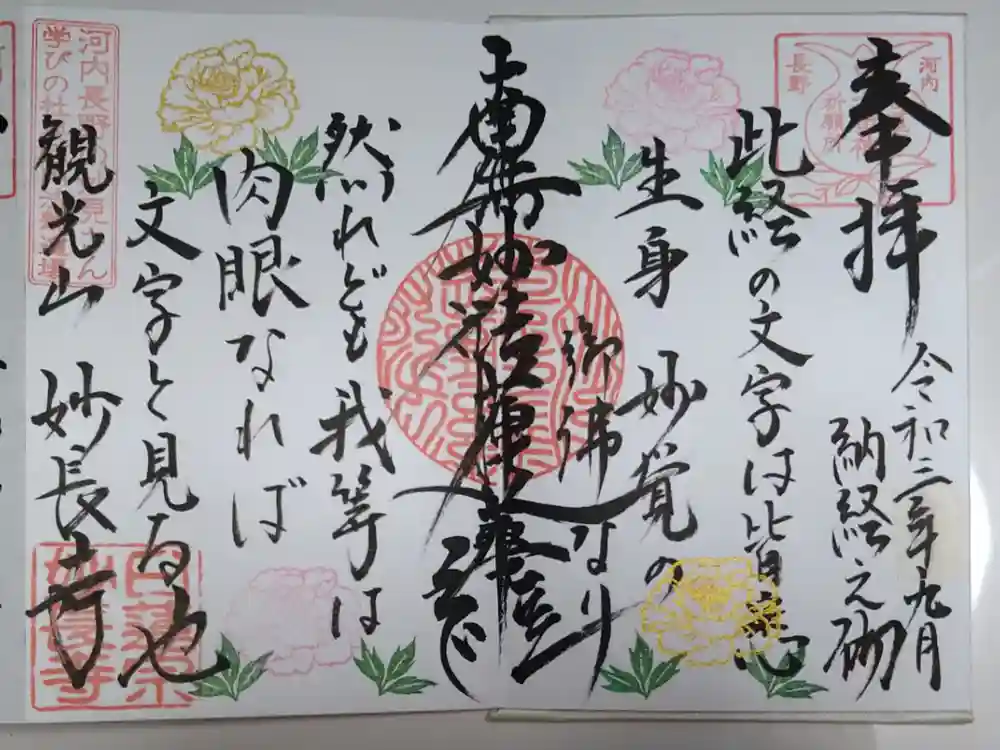 奉拝
令和三年九月
納経之砌
此経の文字は皆悉
生身妙覚の
御佛なり
南無妙法蓮華経
然れども我等は
肉眼なれば
文字と見る也
観光山 妙長寺
河内
長野
祈願所
河内長野
学びの社
日蓮宗
妙長寺